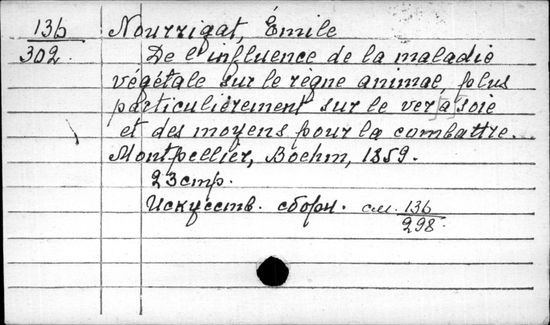 136 Nourrigat, Émile
302. De l'influence de la maladie
végétale sur le règne animal, plus
particulièrement sur le ver à soie
et des moyens pour la combattre.
Montpellier, Boehm, 1859.
23 стр.
Искусств. сборн. см. 136
298.